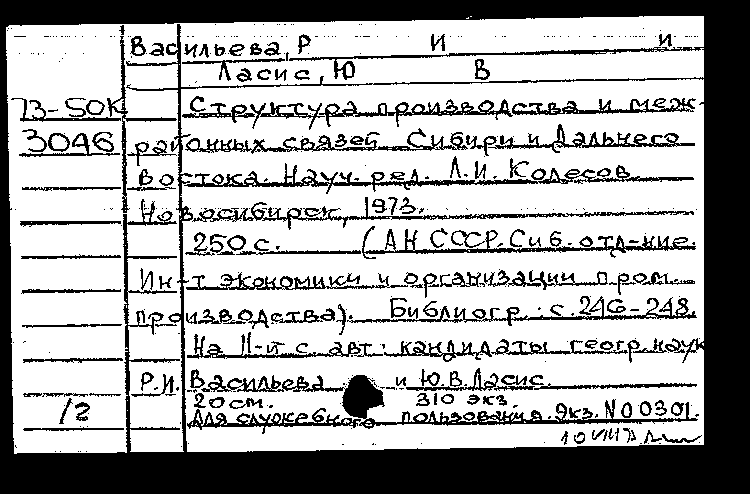 Васильева, Р И и
Ласис, Ю В
73-50К Структура производства и меж-
3046 районных связей Сибири и Дальнего
Востока. Науч. ред. Л.И. Колесов.
Новосибирск, 1973.
250 с. (АН СССР. Сиб. отд-ние.
Ин-т экономики и организации пром.
производства). Библиогр.: с. 246-248.
На II-й с. авт.: кандидаты геогр. наук
Р.И. Васильева и Ю.В. Ласис.
20 см. 310 экз.
12 Для служебного пользования. Экз. N 00301.